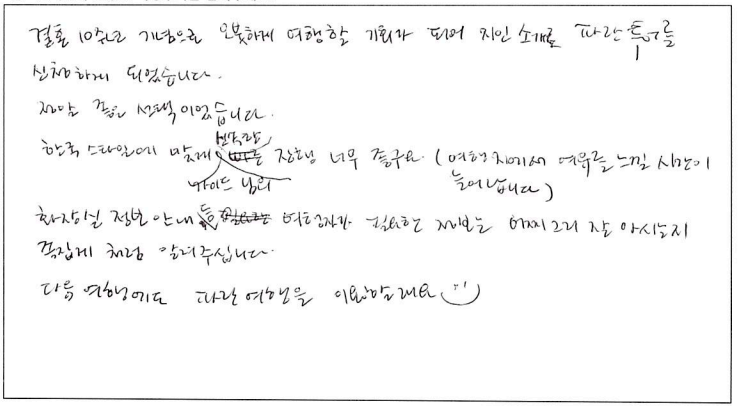 결혼 10주년 기념으로 오붓하게 여행할 기회가 되어 지인 소개로 파란투어를
신청하게 되었습니다.
정말 좋은 선택이었습니다.
한국 스타일에 맞게 가이드님의 신속한 진행 너무 좋구요 (여행지에서 여유를 느낄 시간이
늘어납니다)
화장실 정보 안내 등 여행자가 필요한 정보는 어찌 그리 잘 아시는지
족집게 처럼 알려주십니다.
다음 여행에도 파란여행을 이용할래요